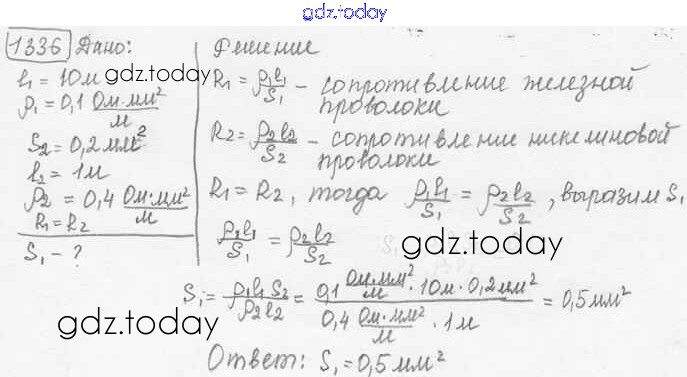 gdz.today
1336 Дано:
l₁ = 10 м
ρ₁ = 0,1 Ом·мм²/м
S₂ = 0,2 мм²
l₂ = 1 м
ρ₂ = 0,4 Ом·мм²/м
R₁ = R₂
S₁ – ?
gdz.today
Решение
R₁ = ρ₁l₁/S₁ – сопротивление железной
проволоки
R₂ = ρ₂l₂/S₂ – сопротивление никелиновой
проволоки
R₁ = R₂, тогда ρ₁l₁/S₁ = ρ₂l₂/S₂, выразим S₁
ρ₁l₁/S₁ = ρ₂l₂/S₂
gdz.today
S₁ = ρ₁l₁S₂/ρ₂l₂ = 0,1 Ом·мм²/м · 10м · 0,2 мм² / 0,4 Ом·мм²/м · 1м = 0,5 мм²
gdz.today
Ответ: S₁ = 0,5 мм²